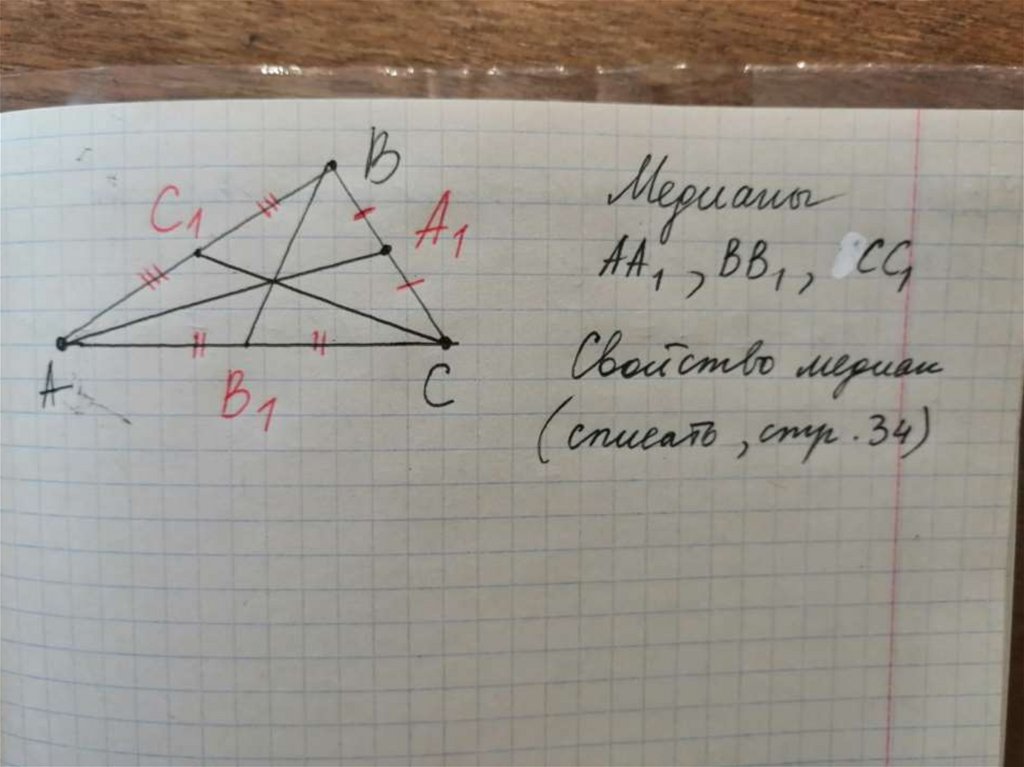 B
C₁
A₁
A
B₁
C
Медианы
AA₁, BB₁, CC₁
Свойство медиан
(списать, стр. 34)